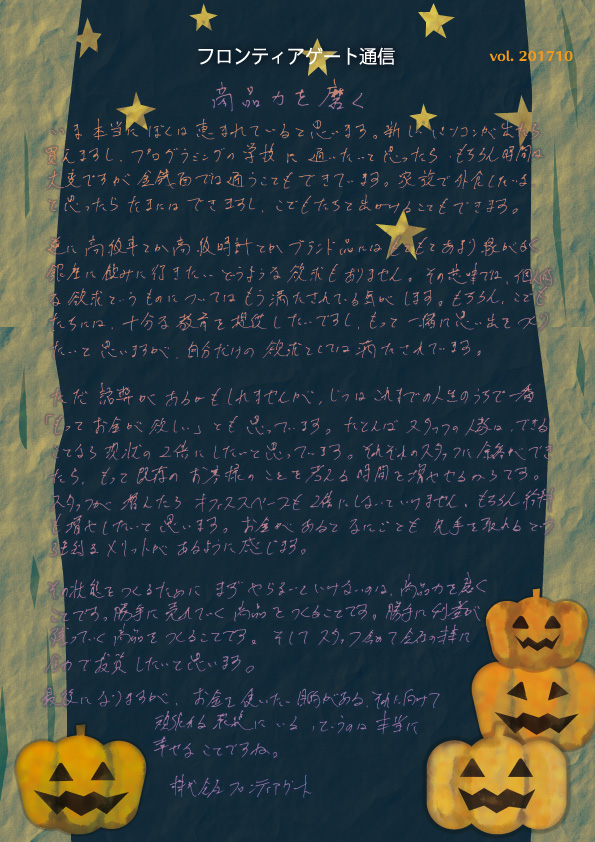 フロンティアゲート通信
vol. 201710
商品力を磨く
いま本当にぼくは恵まれていると思います。新しいパソコンが出たら
買えますし、プログラミングの学校に通いたいと思ったら、もちろん時間は
大変ですが金銭面では通うこともできています。家族で外食したいな
と思ったらたまにはできますし、こどもたちと出かけることもできます。
逆に高級車とか高級時計とかブランド品にはもともとあまり興味がなく
銀座に飲みに行きたいというような欲求もありません。その意味では、個人的
な欲求というものについてはもう満たされている気がします。もちろん、こども
たちには、十分な教育を提供したいですし、もっと一緒に思い出をつくり
たいと思いますが、自分だけの欲求としては満たされています。
ただ誤解があるかもしれませんが、じつはこれまでの人生のうちで一番
「もっとお金が欲しい」とも思っています。たとえばスタッフの人数は、できる
ことなら現状の2倍にしたいと思っています。それぞれのスタッフに余裕ができ
たら、もっと既存のお客様のことを考える時間を増やせるからです。
スタッフが増えたらオフィススペースも2倍にしないといけません。もちろん給料
も増やしたいと思います。お金があるとなにごとも先手を取れるという
メリットがあるように感じます。
その状態をつくるためにまずやらないといけないのは、商品力を磨く
ことです。勝手に売れていく商品をつくることです。勝手に利益が
残っていく商品をつくることです。そしてスタッフ含めて会社の事に
全力で投資したいと思います。
最後になりますが、お金を使いたい目的がある、それに向けて
頑張れる環境にいるっていうのは本当に
幸せなことですね。
株式会社フロンティアゲート